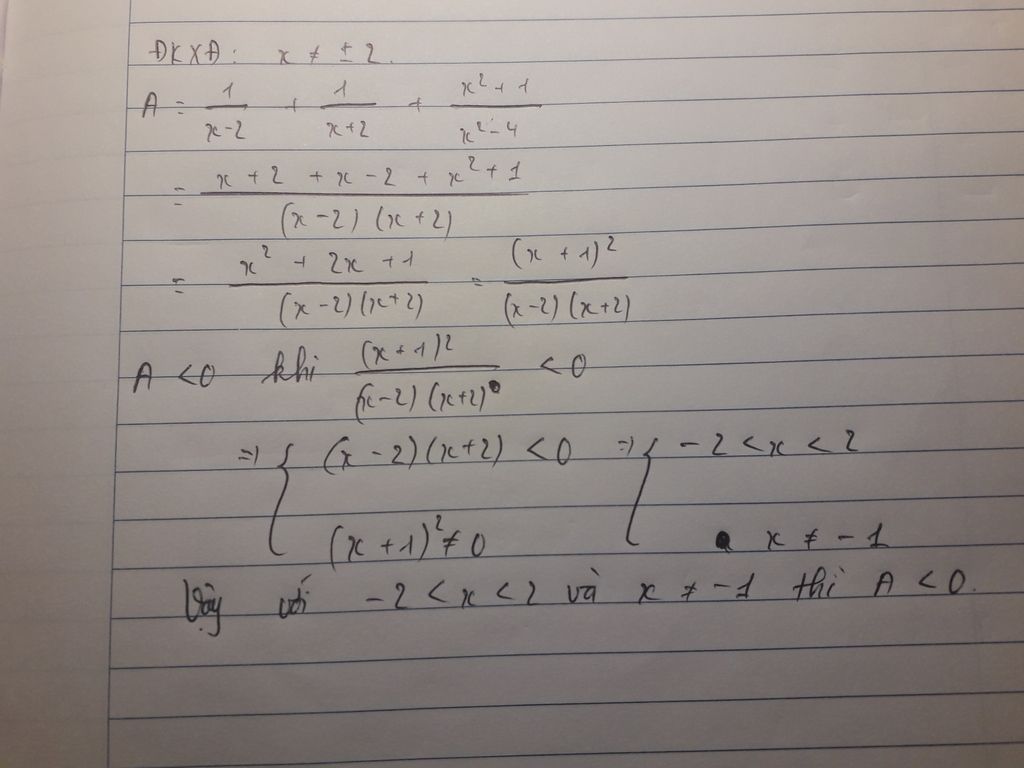 ĐKXĐ: x ≠ ± 2.
A = 1/(x-2) + 1/(x+2) + (x² + 1)/(x² - 4)
= (x + 2 + x - 2 + x² + 1)/((x - 2)(x + 2))
= (x² + 2x + 1)/((x - 2)(x + 2)) = (x + 1)²/((x - 2)(x + 2))
A < 0 khi (x + 1)²/((x - 2)(x + 2)) < 0
=> { (x - 2)(x + 2) < 0 => { -2 < x < 2
(x + 1)² ≠ 0 x ≠ -1
Vậy với -2 < x < 2 và x ≠ -1 thì A < 0.